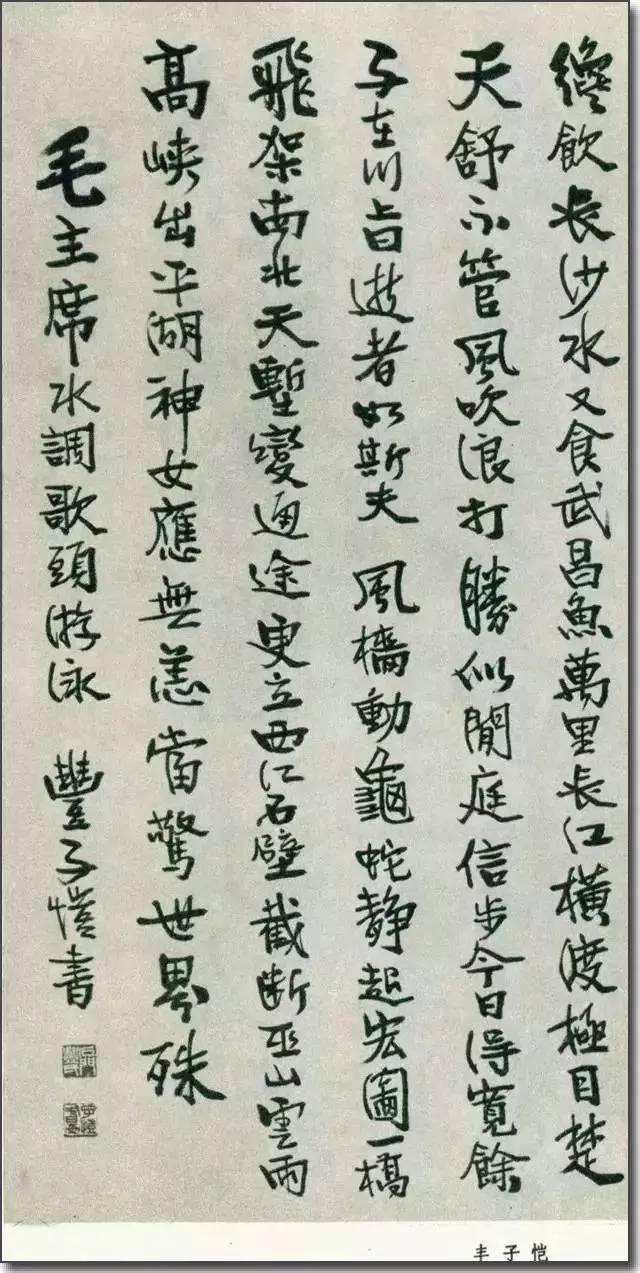 纔飲長沙水又食武昌魚萬里長江橫渡極目楚
天舒不管風吹浪打勝似閒庭信步今日得寬餘
子在川上曰逝者如斯夫 風檣動龜蛇静起宏圖一橋
飛架南北天塹變通途更立西江石壁截断巫山雲雨
高峽出平湖神女應無恙當驚世界殊
毛主席水調歌頭游泳 豐子愷書
丰子恺